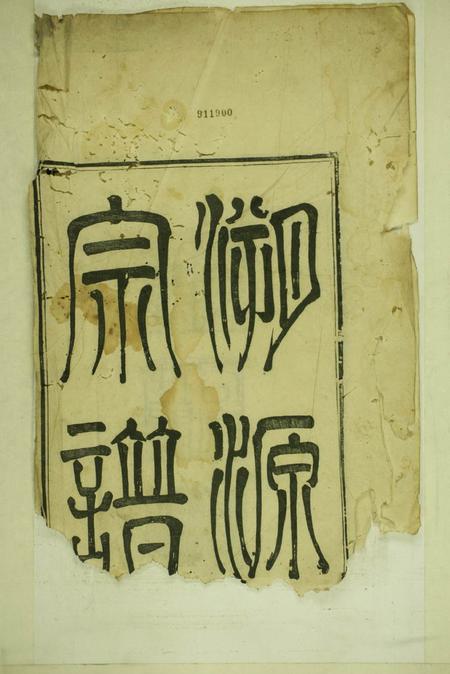 911900
溯源
宗譜